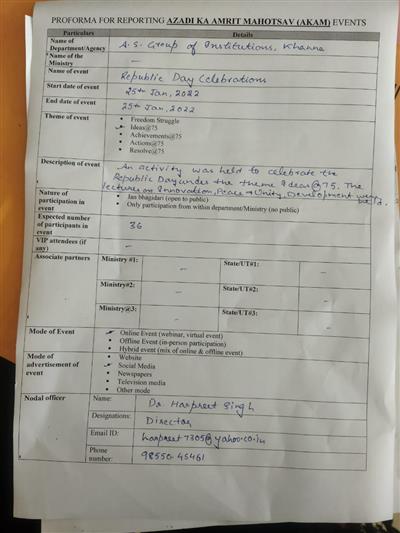 PROFORMA FOR REPORTING AZADI KA AMRIT MAHOTSAV (AKAM) EVENTS
Particulars Details
Name of Department/Agency A.S. Group of Institutions, Khanna
Name of the Ministry —
Name of event Republic Day Celebrations
Start date of event 25th Jan, 2022
End date of event 25th Jan, 2022
Theme of event
• Freedom Struggle
• Ideas@75
• Achievements@75
• Actions@75
• Resolve@75
Description of event An activity was held to celebrate the
Republic Day under the theme Ideas@75. The
lectures on Innovation, Peace & Unity, Development were
held.
Nature of participation in event
• Jan bhagidari (open to public)
• Only participation from within department/Ministry (no public)
Expected number of participants in event 36
VIP attendees (if any) —
Associate partners Ministry #1: — State/UT#1: —
Ministry#2: — State/UT#2: —
Ministry@3: — State/UT#3: —
Mode of Event
• Online Event (webinar, virtual event)
• Offline Event (in-person participation)
• Hybrid event (mix of online & offline event)
Mode of advertisement of event
• Website
• Social Media
• Newspapers
• Television media
• Other mode
Nodal officer Name: Dr. Harpreet Singh
Designations: Director
Email ID: harpreet7305@yahoo.co.in
Phone number: 98550-45461